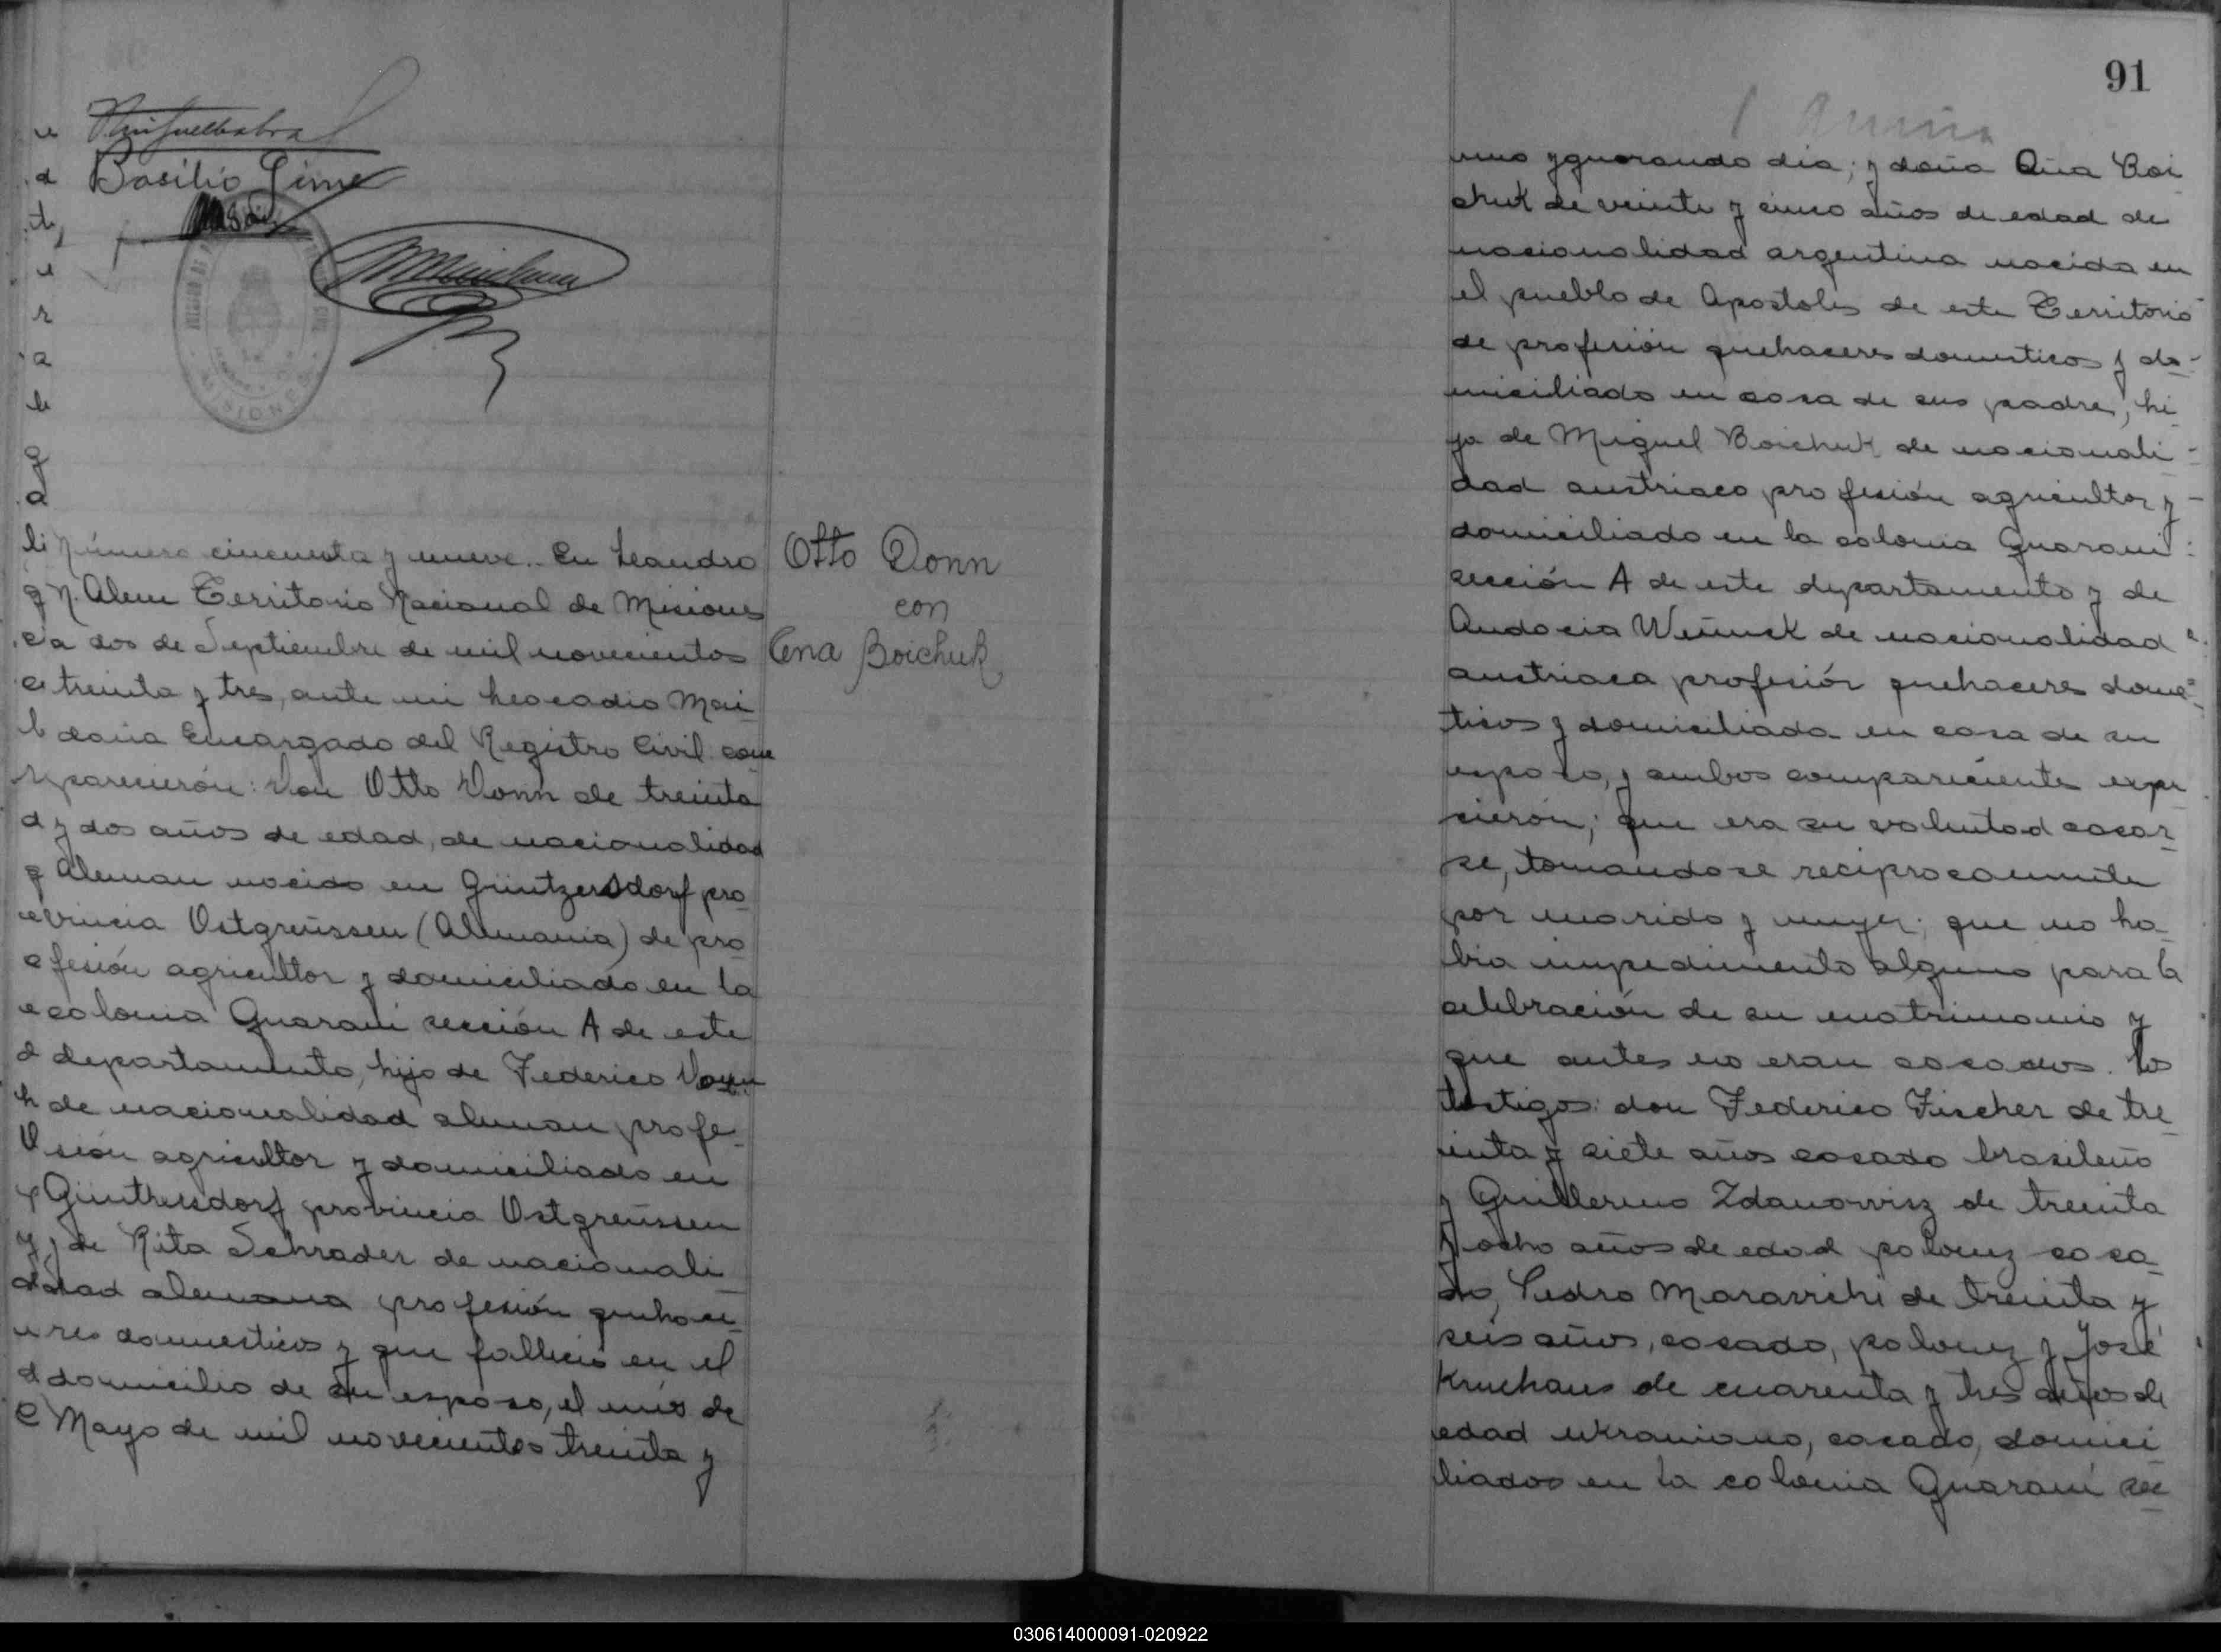 Basilio Gime
MISIONES
Número cincuenta y nueve.. En Leandro
N. Alem Territorio Nacional de Misiones
a dos de Septiembre de mil novecientos
treinta y tres, ante mi Leocadio Mai-
dana Encargado del Registro Civil com
parecierón: Don Otto Donn de treinta
y dos años de edad, de nacionalidad
Aleman nacido en Güntzersdorf pro-
vincia Ostgreüssen (Alemania) de pro-
fesión agricultor y domiciliado en la
colonia Guarani sección A de este
departamento, hijo de Federico Donn
de nacionalidad aleman profe-
sión agricultor y domiciliado en
provincia Ostgreüssen
y de Rita Schrader de nacionali-
dad alemana profesión quehace-
res domesticos y que fallecio en el
domicilio de su esposo, el mes de
Mayo de mil novecientos treinta y
Otto Donn
con
Ana Boichuk
91
uno ygnorando dia; y doña Ana Boi
chuk de veinte y cinco años de edad de
nacionalidad argentina nacida en
el pueblo de Apostoles de este Territorio
de profesión quehaceres domesticos y do-
miciliado en casa de sus padres, hi
ja de Miguel Boichuk de nacionali-
dad austriaco profesión agricultor y
domiciliado en la colonia Guarani
sección A de este departamento y de
Audocia de nacionalidad
austriaca profesión quehaceres domes-
ticos y domiciliada en casa de su
esposo, y ambos compareciente expu
sierón; que era su voluntad casar-
se, tomandose reciprocamente
por marido y mujer; que no ha-
bia impedimento alguno para la
celebración de su matrimonio y
que antes no eran casados. Los
testigos: don Federico Fischer de tre-
inta y siete años casado brasileño
y Guillermo Zdanowisz de treinta
y ocho años de edad polonez casa-
do, Pedro de treinta y
seis años, casado, polonez y José
Kruchaus de cuarenta y tres años de
edad ukraniano, casado, domici
liados en la colonia Guarani sec
030614000091-020922